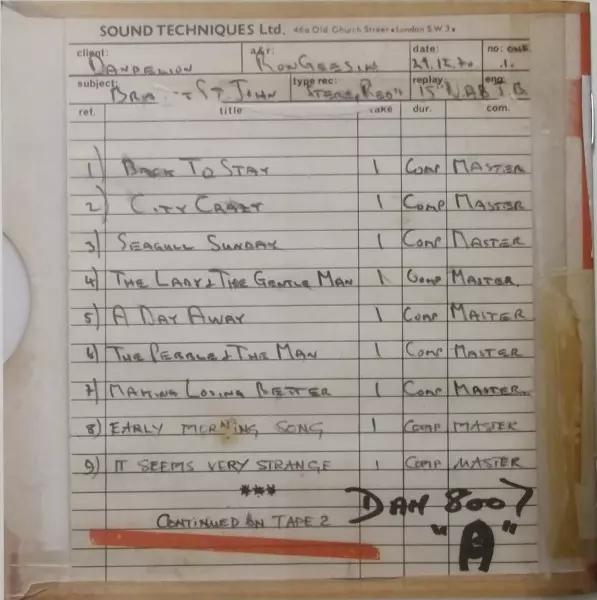 SOUND TECHNIQUES Ltd. 46a Old Church Street London S.W.3.
client: a&r: date: no: ONE
DANDELION RON GEESIN 29.12.70 .1.
subject: type rec: replay eng.
ST JOHN STEREO 15" NAB J.B
ref. title take dur. com.
1) BACK TO STAY 1 COMP MASTER
2) CITY CRAZY 1 COMP MASTER
3) SEAGULL SUNDAY 1 COMP MASTER
4) THE LADY & THE GENTLE MAN 1 COMP MASTER.
5) A DAY AWAY 1 COMP MASTER
6) THE PEBBLE & THE MAN 1 COMP MASTER
7) MAKING LOSING BETTER 1 COMP MASTER
8) EARLY MORNING SONG 1 COMP MASTER
9) IT SEEMS VERY STRANGE 1 COMP MASTER
***
CONTINUED ON TAPE 2
DAN 8007
"A"